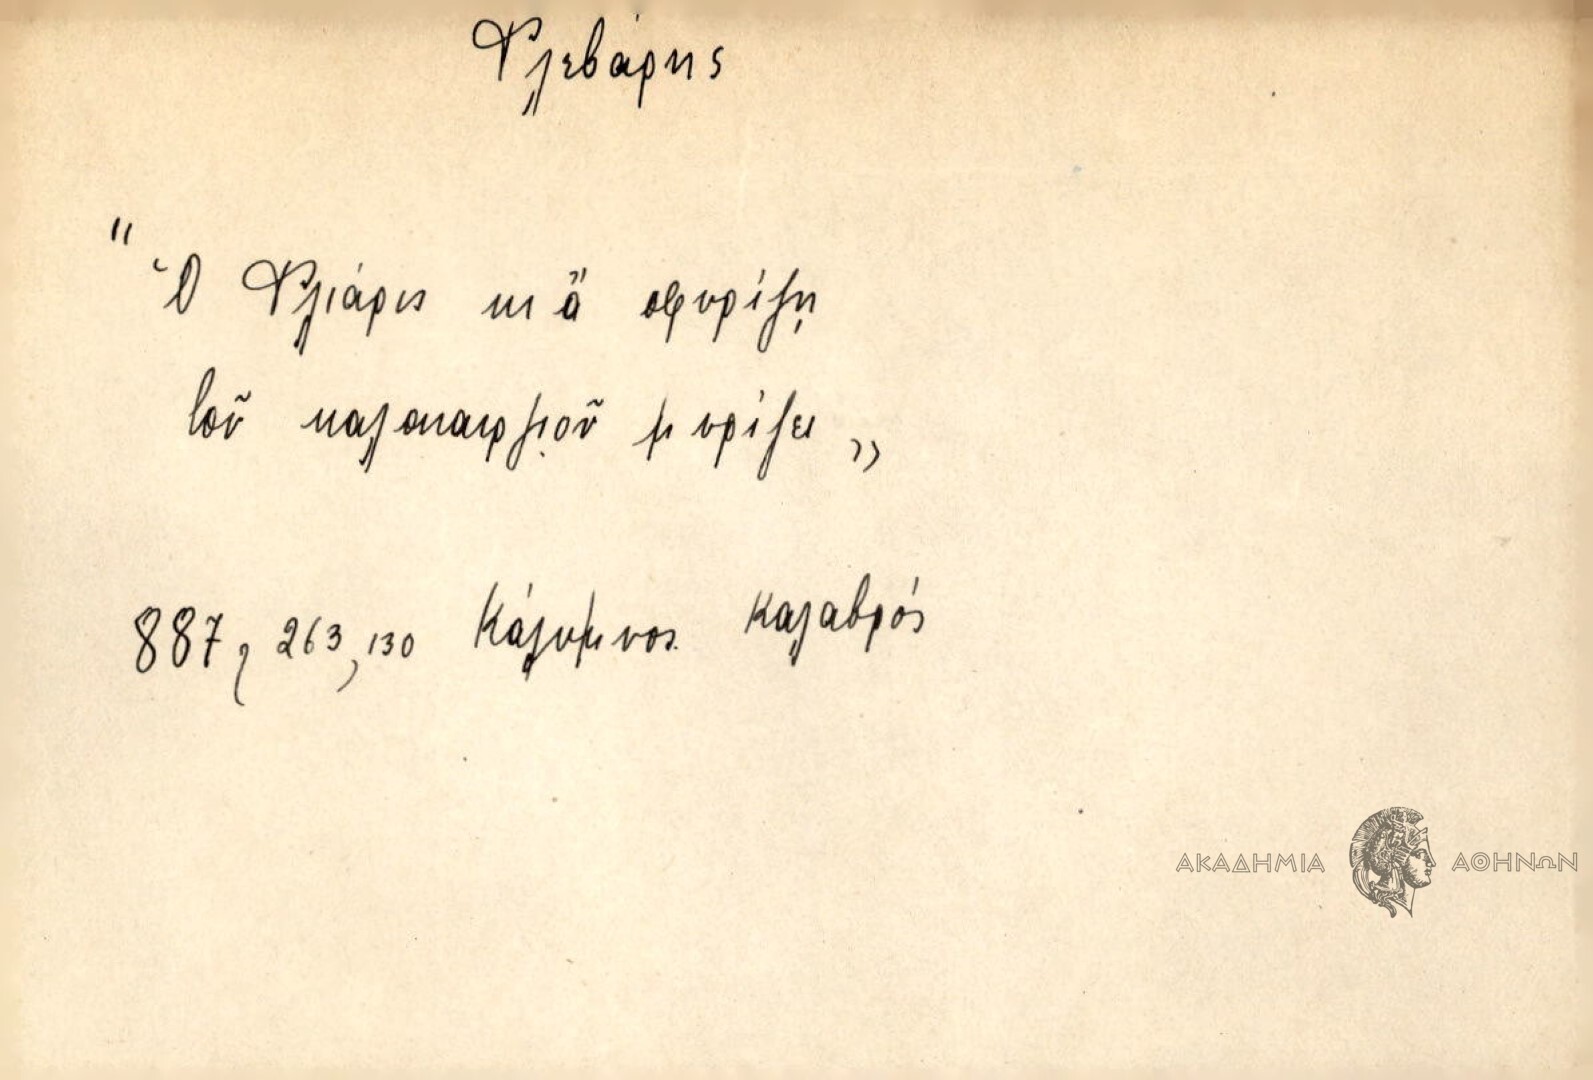 Φλεβάρης
"Ὁ Φλιάρις κι ἄ σφυρίζῃ
τοῦ καλοκαιρμιοῦ μυρίζει „
887, 263, 130 Κάλυμνος Καλαβρός
ΑΚΑΔΗΜΙΑ ΑΘΗΝΩΝ